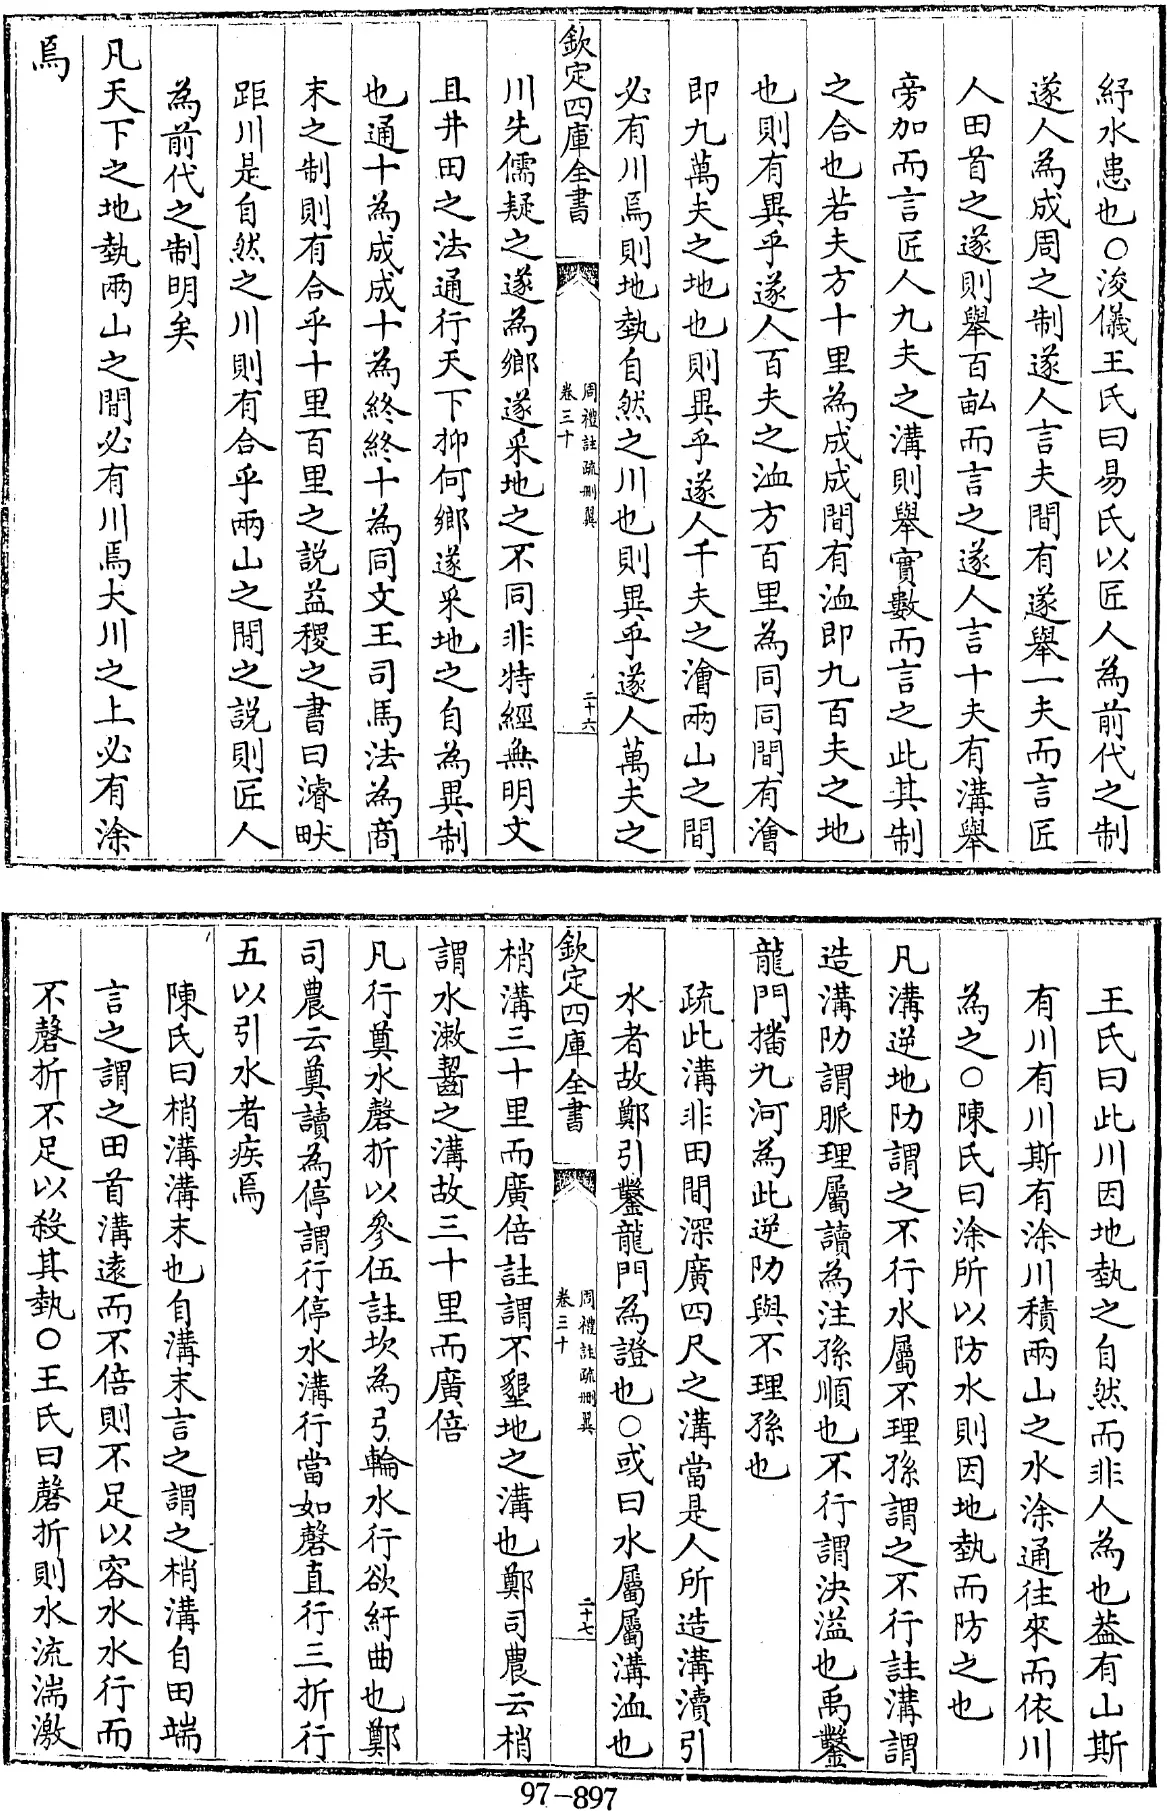 紓水患也○浚儀王氏曰易氏以匠人為前代之制
遂人為成周之制遂人言夫間有遂舉一夫而言匠
人田首之遂則舉百畆而言之遂人言十夫有溝舉
旁加而言匠人九夫之溝則舉實數而言之此其制
之合也若夫方十里為成成間有洫即九百夫之地
也則有異乎遂人百夫之洫方百里為同同間有澮
即九萬夫之地也則異乎遂人千夫之澮兩山之間
必有川焉則地埶自然之川也則異乎遂人萬夫之
欽定四庫全書
周禮註疏刪翼
卷三十
二十六
川先儒疑之遂為鄉遂采地之不同非特經無明文
且井田之法通行天下抑何鄉遂采地之自為異制
也通十為成成十為終終十為同文王司馬法為商
末之制則有合乎十里百里之説益稷之書曰濬畎
距川是自然之川則有合乎兩山之間之説則匠人
為前代之制明矣
凡天下之地埶兩山之間必有川焉大川之上必有涂
焉
王氏曰此川因地埶之自然而非人為也葢有山斯
有川有川斯有涂川積兩山之水涂通往來而依川
為之○陳氏曰涂所以防水則因地埶而防之也
凡溝逆地阞謂之不行水屬不理孫謂之不行註溝謂
造溝阞謂脈理屬讀為注孫順也不行謂決溢也禹鑿
龍門播九河為此逆阞與不理孫也
疏此溝非田間深廣四尺之溝當是人所造溝瀆引
水者故鄭引鑿龍門為證也○或曰水屬屬溝洫也
欽定四庫全書
周禮註疏刪翼
卷三十
二十七
梢溝三十里而廣倍註謂不墾地之溝也鄭司農云梢
謂水漱齧之溝故三十里而廣倍
凡行奠水磬折以參伍註坎為弓輪水行欲紆曲也鄭
司農云奠讀為停謂行停水溝行當如磬直行三折行
五以引水者疾焉
陳氏曰梢溝溝末也自溝末言之謂之梢溝自田端
言之謂之田首溝遠而不倍則不足以容水水行而
不磬折不足以殺其埶○王氏曰磬折則水流湍激
97-897